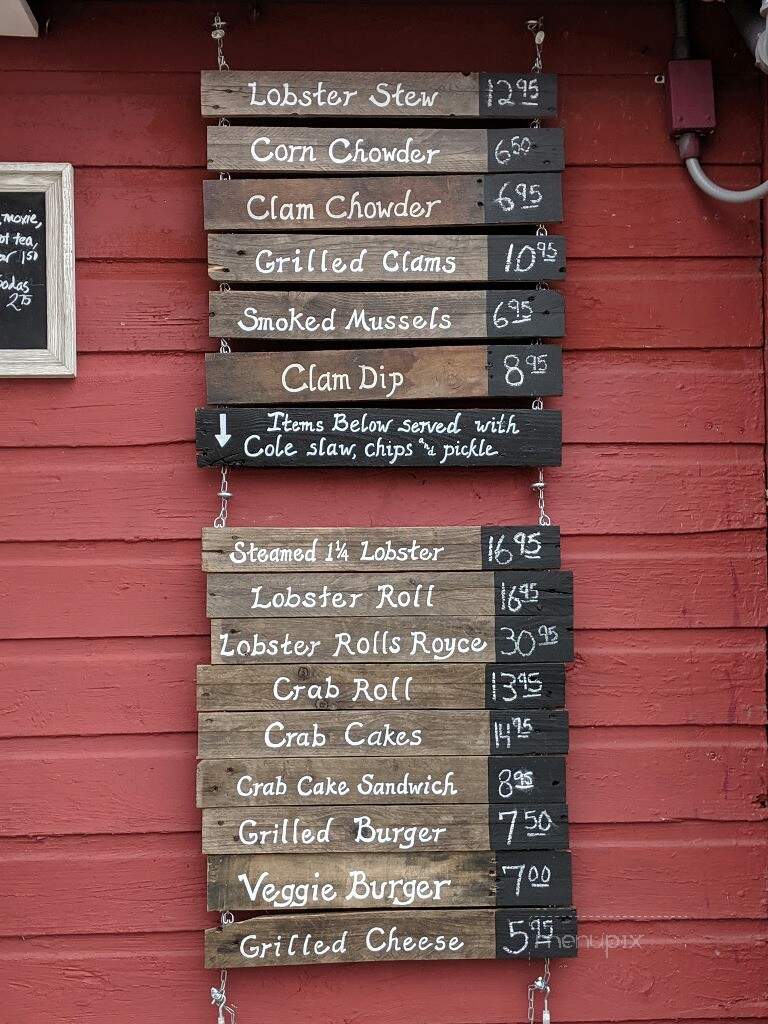 moxie,
tea,
1 50
2 75
Lobster Stew 12 95
Corn Chowder 6 50
Clam Chowder 6 95
Grilled Clams 10 95
Smoked Mussels 6 95
Clam Dip 8 95
↓ Items Below served with
Cole slaw, chips and pickle
Steamed 1¼ Lobster 16 95
Lobster Roll 16 95
Lobster Rolls Royce 30 95
Crab Roll 13 95
Crab Cakes 14 95
Crab Cake Sandwich 8 95
Grilled Burger 7 50
Veggie Burger 7 00
Grilled Cheese 5 95
menupix